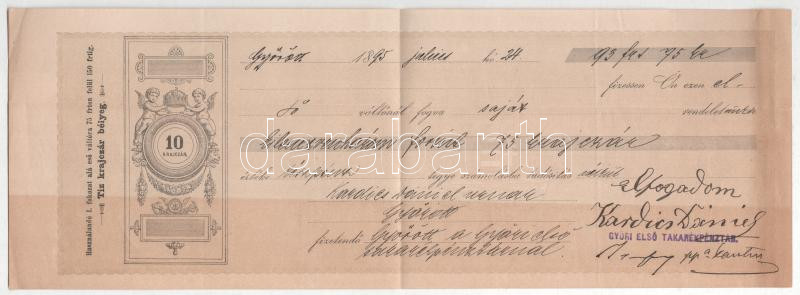 Használandó I. fokozat alá eső váltóra 75 frton felül 150 frtig.
Tiz krajczár bélyeg.
10
KRAJCZÁR
Győrött 1895 julius hó 24. 93 frt 75 kr
fizessen Ön ezen el-
váltónál fogva saját rendeletünkre
Kilenczvenhárom forint 75 krajczár
értéke számolandó tudósitás nélkül
Kardics Dániel urnak
Győrött
fizetendő Győrött a Győri első
takarékpénztárnál
Elfogadom
Kardics Dániel
GYŐRI ELSŐ TAKARÉKPÉNZTÁR.
darabanth